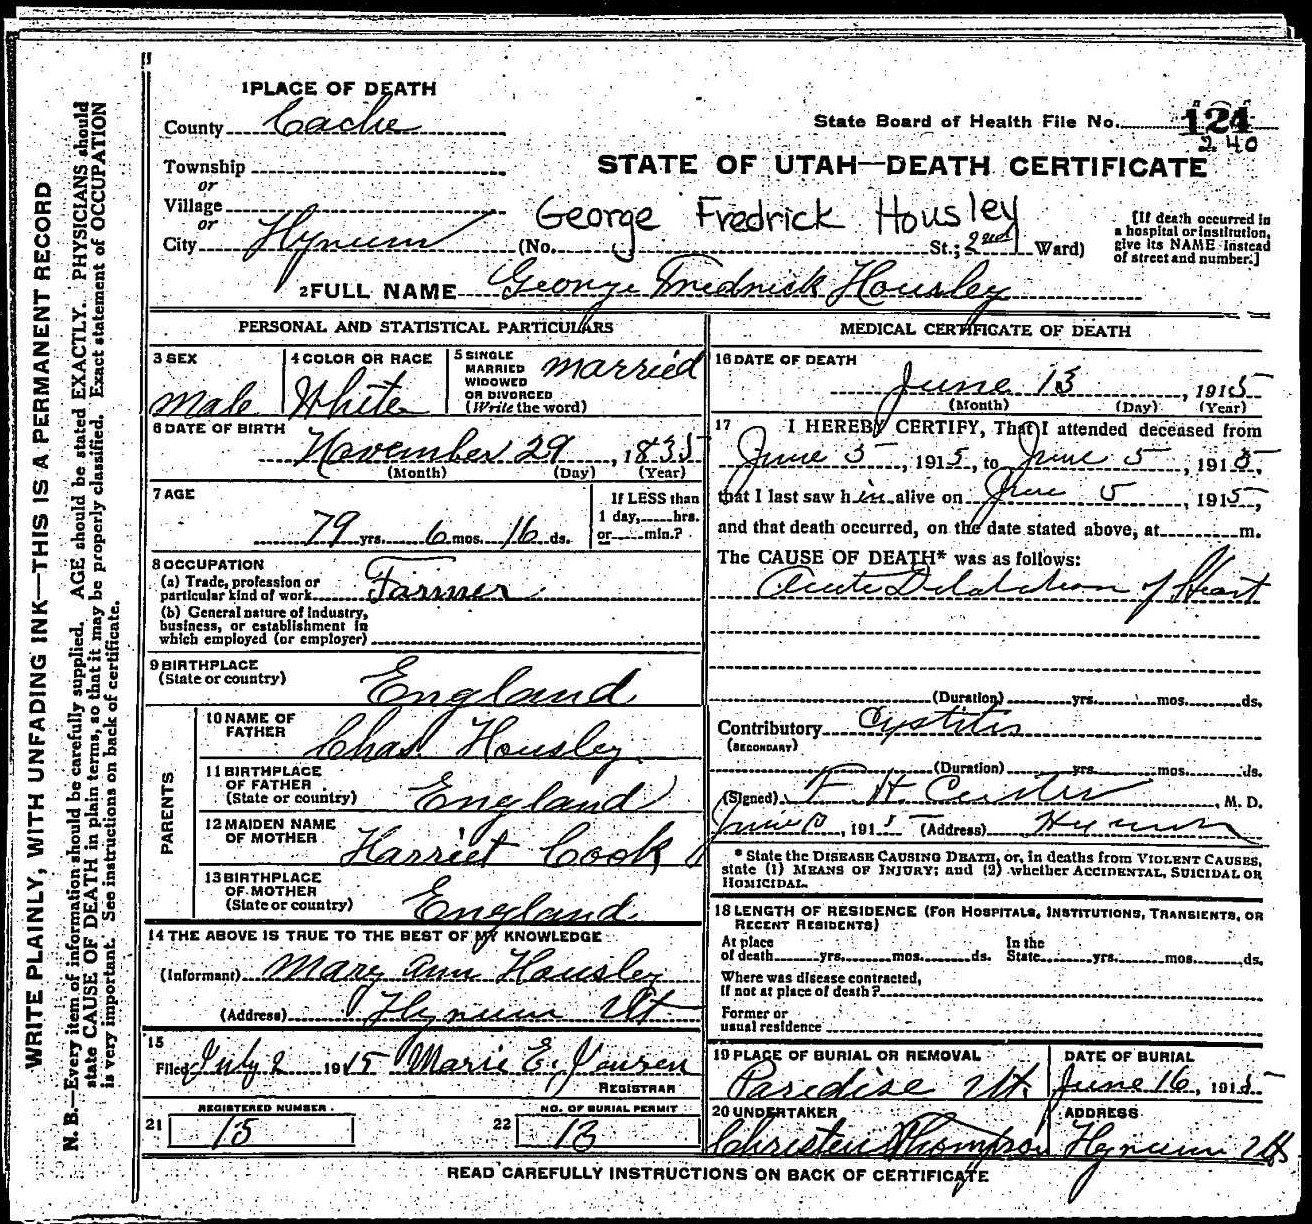 1 PLACE OF DEATH
County Cache
State Board of Health File No. 124
240
Township
or
Village
or
City Hyrum
STATE OF UTAH—DEATH CERTIFICATE
George Fredrick Housley
(No. St.; 2nd Ward)
[If death occurred in
a hospital or institution,
give its NAME instead
of street and number.]
2 FULL NAME George Fredrick Housley
PERSONAL AND STATISTICAL PARTICULARS
3 SEX
Male
4 COLOR OR RACE
White
5 SINGLE
MARRIED
WIDOWED
OR DIVORCED
(Write the word)
married
6 DATE OF BIRTH
November 29, 1835
(Month) (Day) (Year)
7 AGE
79 yrs. 6 mos. 16 ds.
If LESS than
1 day, hrs.
or min.?
8 OCCUPATION
(a) Trade, profession or
particular kind of work Farmer
(b) General nature of Industry,
business, or establishment in
which employed (or employer)
9 BIRTHPLACE
(State or country)
England
PARENTS
10 NAME OF
FATHER
Chas. Housley
11 BIRTHPLACE
OF FATHER
(State or country)
England
12 MAIDEN NAME
OF MOTHER
Harriet Cook
13 BIRTHPLACE
OF MOTHER
(State or country)
England
14 THE ABOVE IS TRUE TO THE BEST OF MY KNOWLEDGE
(Informant) Mary Ann Housley
(Address) Hyrum Ut
15
Filed July 2 1915 Marie E.
REGISTRAR
REGISTERED NUMBER
21 15
NO. OF BURIAL PERMIT
22 13
MEDICAL CERTIFICATE OF DEATH
16 DATE OF DEATH
June 13, 1915
(Month) (Day) (Year)
17 I HEREBY CERTIFY, That I attended deceased from
June 5, 1915, to June 5, 1915,
that I last saw him alive on June 5, 1915,
and that death occurred, on the date stated above, at m.
The CAUSE OF DEATH* was as follows:
Acute Dilatation of Heart
(Duration) yrs. mos. ds.
Contributory Cystitis
(SECONDARY)
(Duration) yrs. mos. ds.
(Signed) F. H. , M. D.
June , 1915 (Address) Hyrum
* State the DISEASE CAUSING DEATH, or, in deaths from VIOLENT CAUSES,
state (1) MEANS OF INJURY; and (2) whether ACCIDENTAL, SUICIDAL OR
HOMICIDAL.
18 LENGTH OF RESIDENCE (FOR HOSPITALS, INSTITUTIONS, TRANSIENTS, OR
RECENT RESIDENTS)
At place
of death yrs. mos. ds.
In the
State yrs. mos. ds.
Where was disease contracted,
if not at place of death?
Former or
usual residence
19 PLACE OF BURIAL OR REMOVAL
Paradise Ut.
DATE OF BURIAL
June 16, 1915
20 UNDERTAKER
Christen Thompson
ADDRESS
Hyrum Ut
READ CAREFULLY INSTRUCTIONS ON BACK OF CERTIFICATE
WRITE PLAINLY, WITH UNFADING INK—THIS IS A PERMANENT RECORD
N. B.—Every item of information should be carefully supplied. AGE should be stated EXACTLY. PHYSICIANS should
state CAUSE OF DEATH in plain terms, so that it may be properly classified. Exact statement of OCCUPATION
is very important. See instructions on back of certificate.